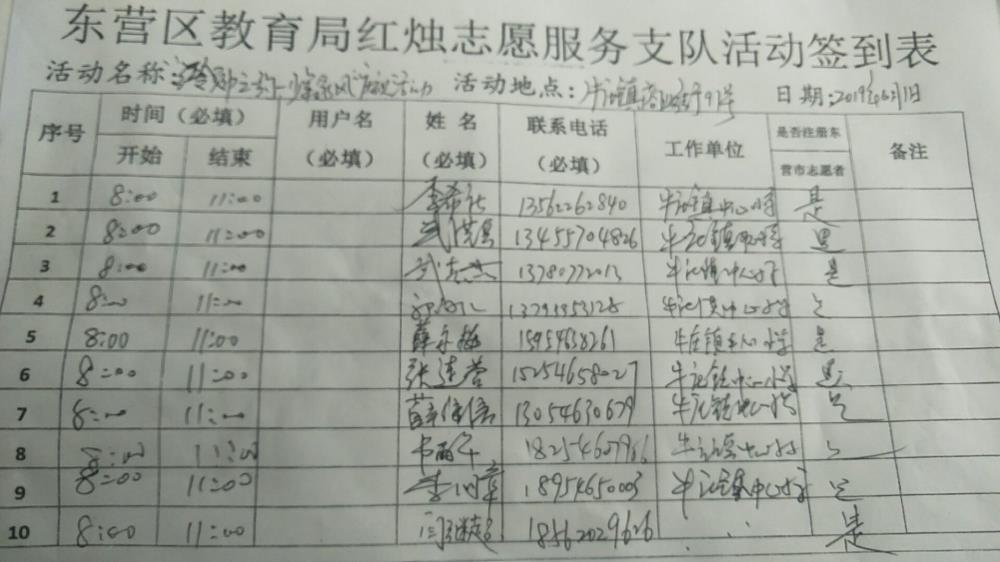 东营区教育局红烛志愿服务支队活动签到表
活动名称 活动地点: 日期:2019年6月1日
序号 时间(必填) 用户名(必填) 姓名(必填) 联系电话(必填) 工作单位 是否注册东营市志愿者 备注
开始 结束
1 8:00 11:00 李希社 13562262840 牛庄镇中心小学 是
2 8:00 11:00 13455704826 牛庄镇中心小学 是
3 8:00 11:00 武志杰 13780772013 牛庄镇中心小学 是
4 8:00 11:00 牛庄镇中心小学 是
5 8:00 11:00 薛永梅 15954658261 牛庄镇中心小学 是
6 8:00 11:00 张连营 15254658027 牛庄镇中心小学 是
7 8:00 11:00 13054630679 牛庄镇中心小学 是
8 8:00 11:00 牛庄镇中心小学 是
9 8:00 11:00 18954650003 牛庄镇中心小学 是
10 8:00 11:00 18562029626 是